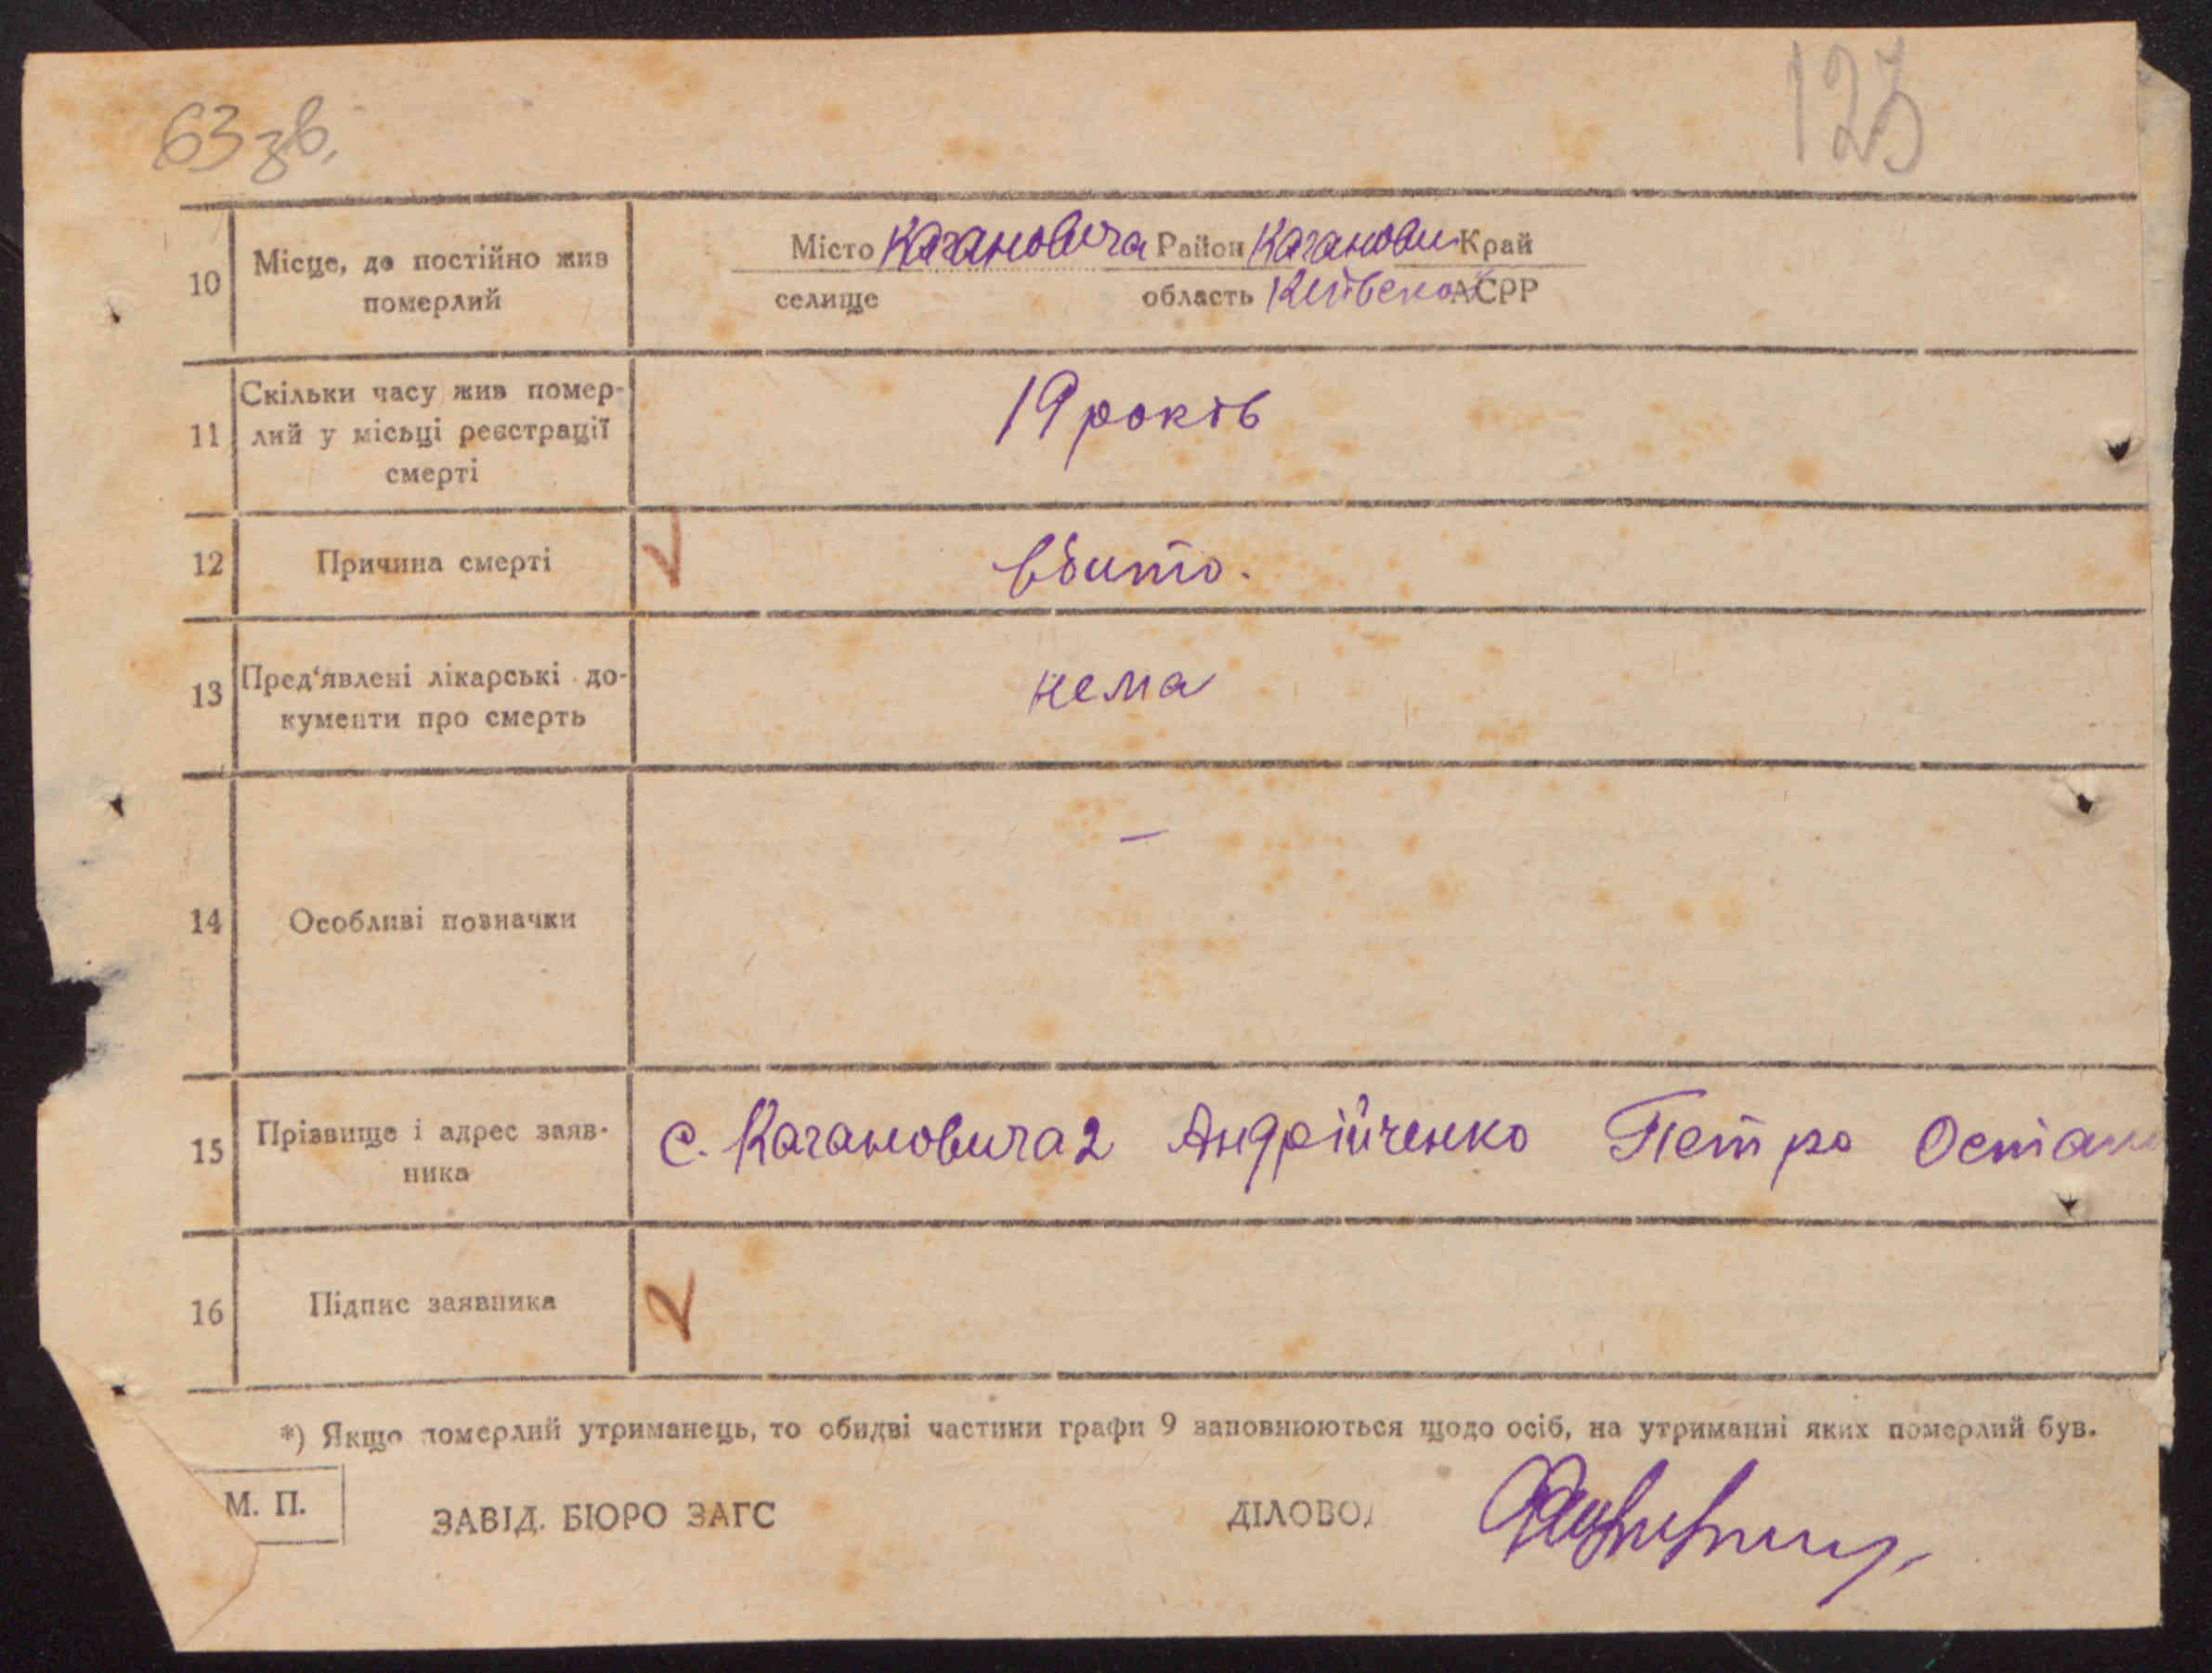 63 зв.
123
10
Місце, де постійно жив
померлий
Місто Кагановича Район Каганови Край
селище область Київської АСРР
11
Скільки часу жив помер-
лий у місьці реєстрації
смерті
19 років
12
Причина смерті
вбито.
13
Пред'явлені лікарські до-
кументи про смерть
нема
14
Особливі позначки
–
15
Прізвище і адрес заяв-
ника
с. Кагановича 2 Андрійченко Петро Остап
16
Підпис заявника
*) Якщо померлий утриманець, то обидві частини графи 9 заповнюються щодо осіб, на утриманні яких померлий був.
М. П.
ЗАВІД. БЮРО ЗАГС
ДІЛОВОД